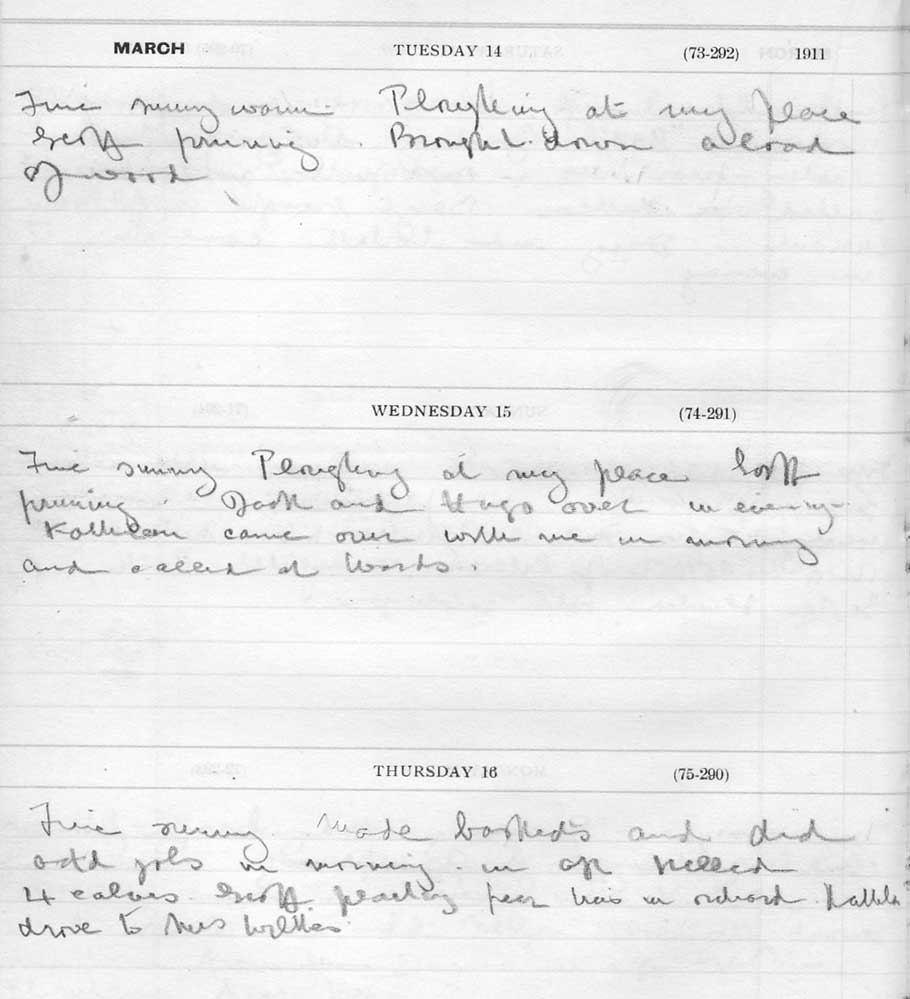 MARCH TUESDAY 14 (73-292) 1911
Fine sunny warm. Ploughing at my place
Geoff pruning. Brought down a load
of wood
WEDNESDAY 15 (74-291)
Fine sunny Ploughing at my place Geoff
pruning. Jack and Hugo over in evening
Kathleen came over with me in morning
and called at Wards.
THURSDAY 16 (75-290)
Fine sunny. Made baskets and did
odd jobs in morning. in aft killed
4 calves. Geoff planting pear trees in orchard.
drove to Mrs